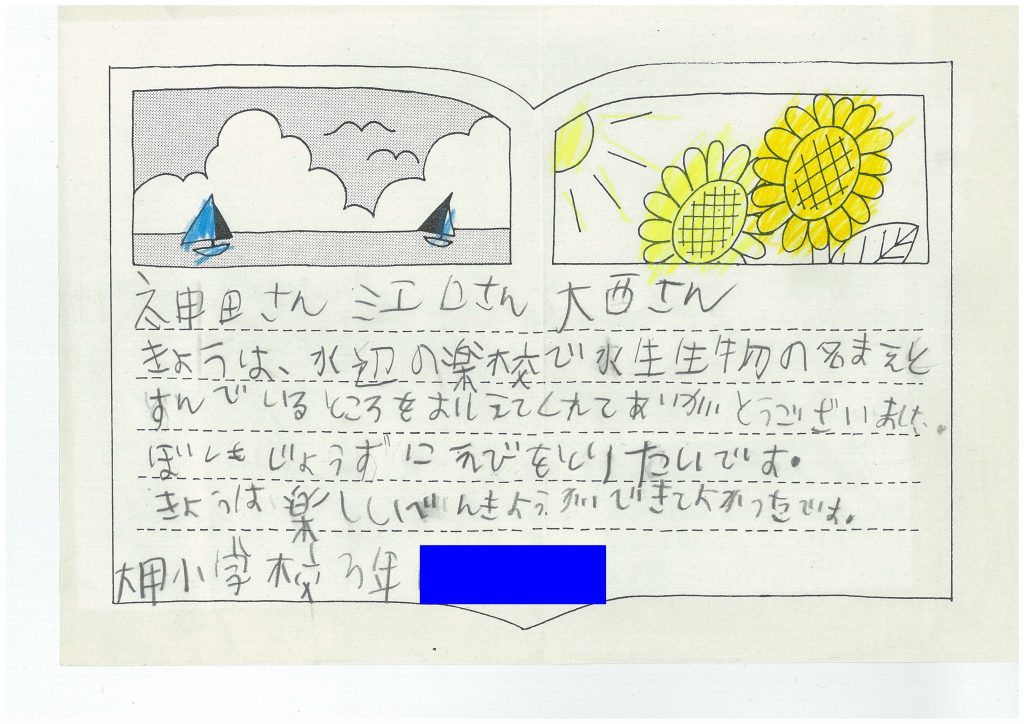 神田さん 江口さん 大西さん
きょうは、水辺の楽校で水生生物の名まえと
すんでいるところをおしえてくれてありがとうございました。
ぼくもじょうずにえびをとりたいです。
きょうは楽しいべんきょうができてよかったです。
大用小学校 3年